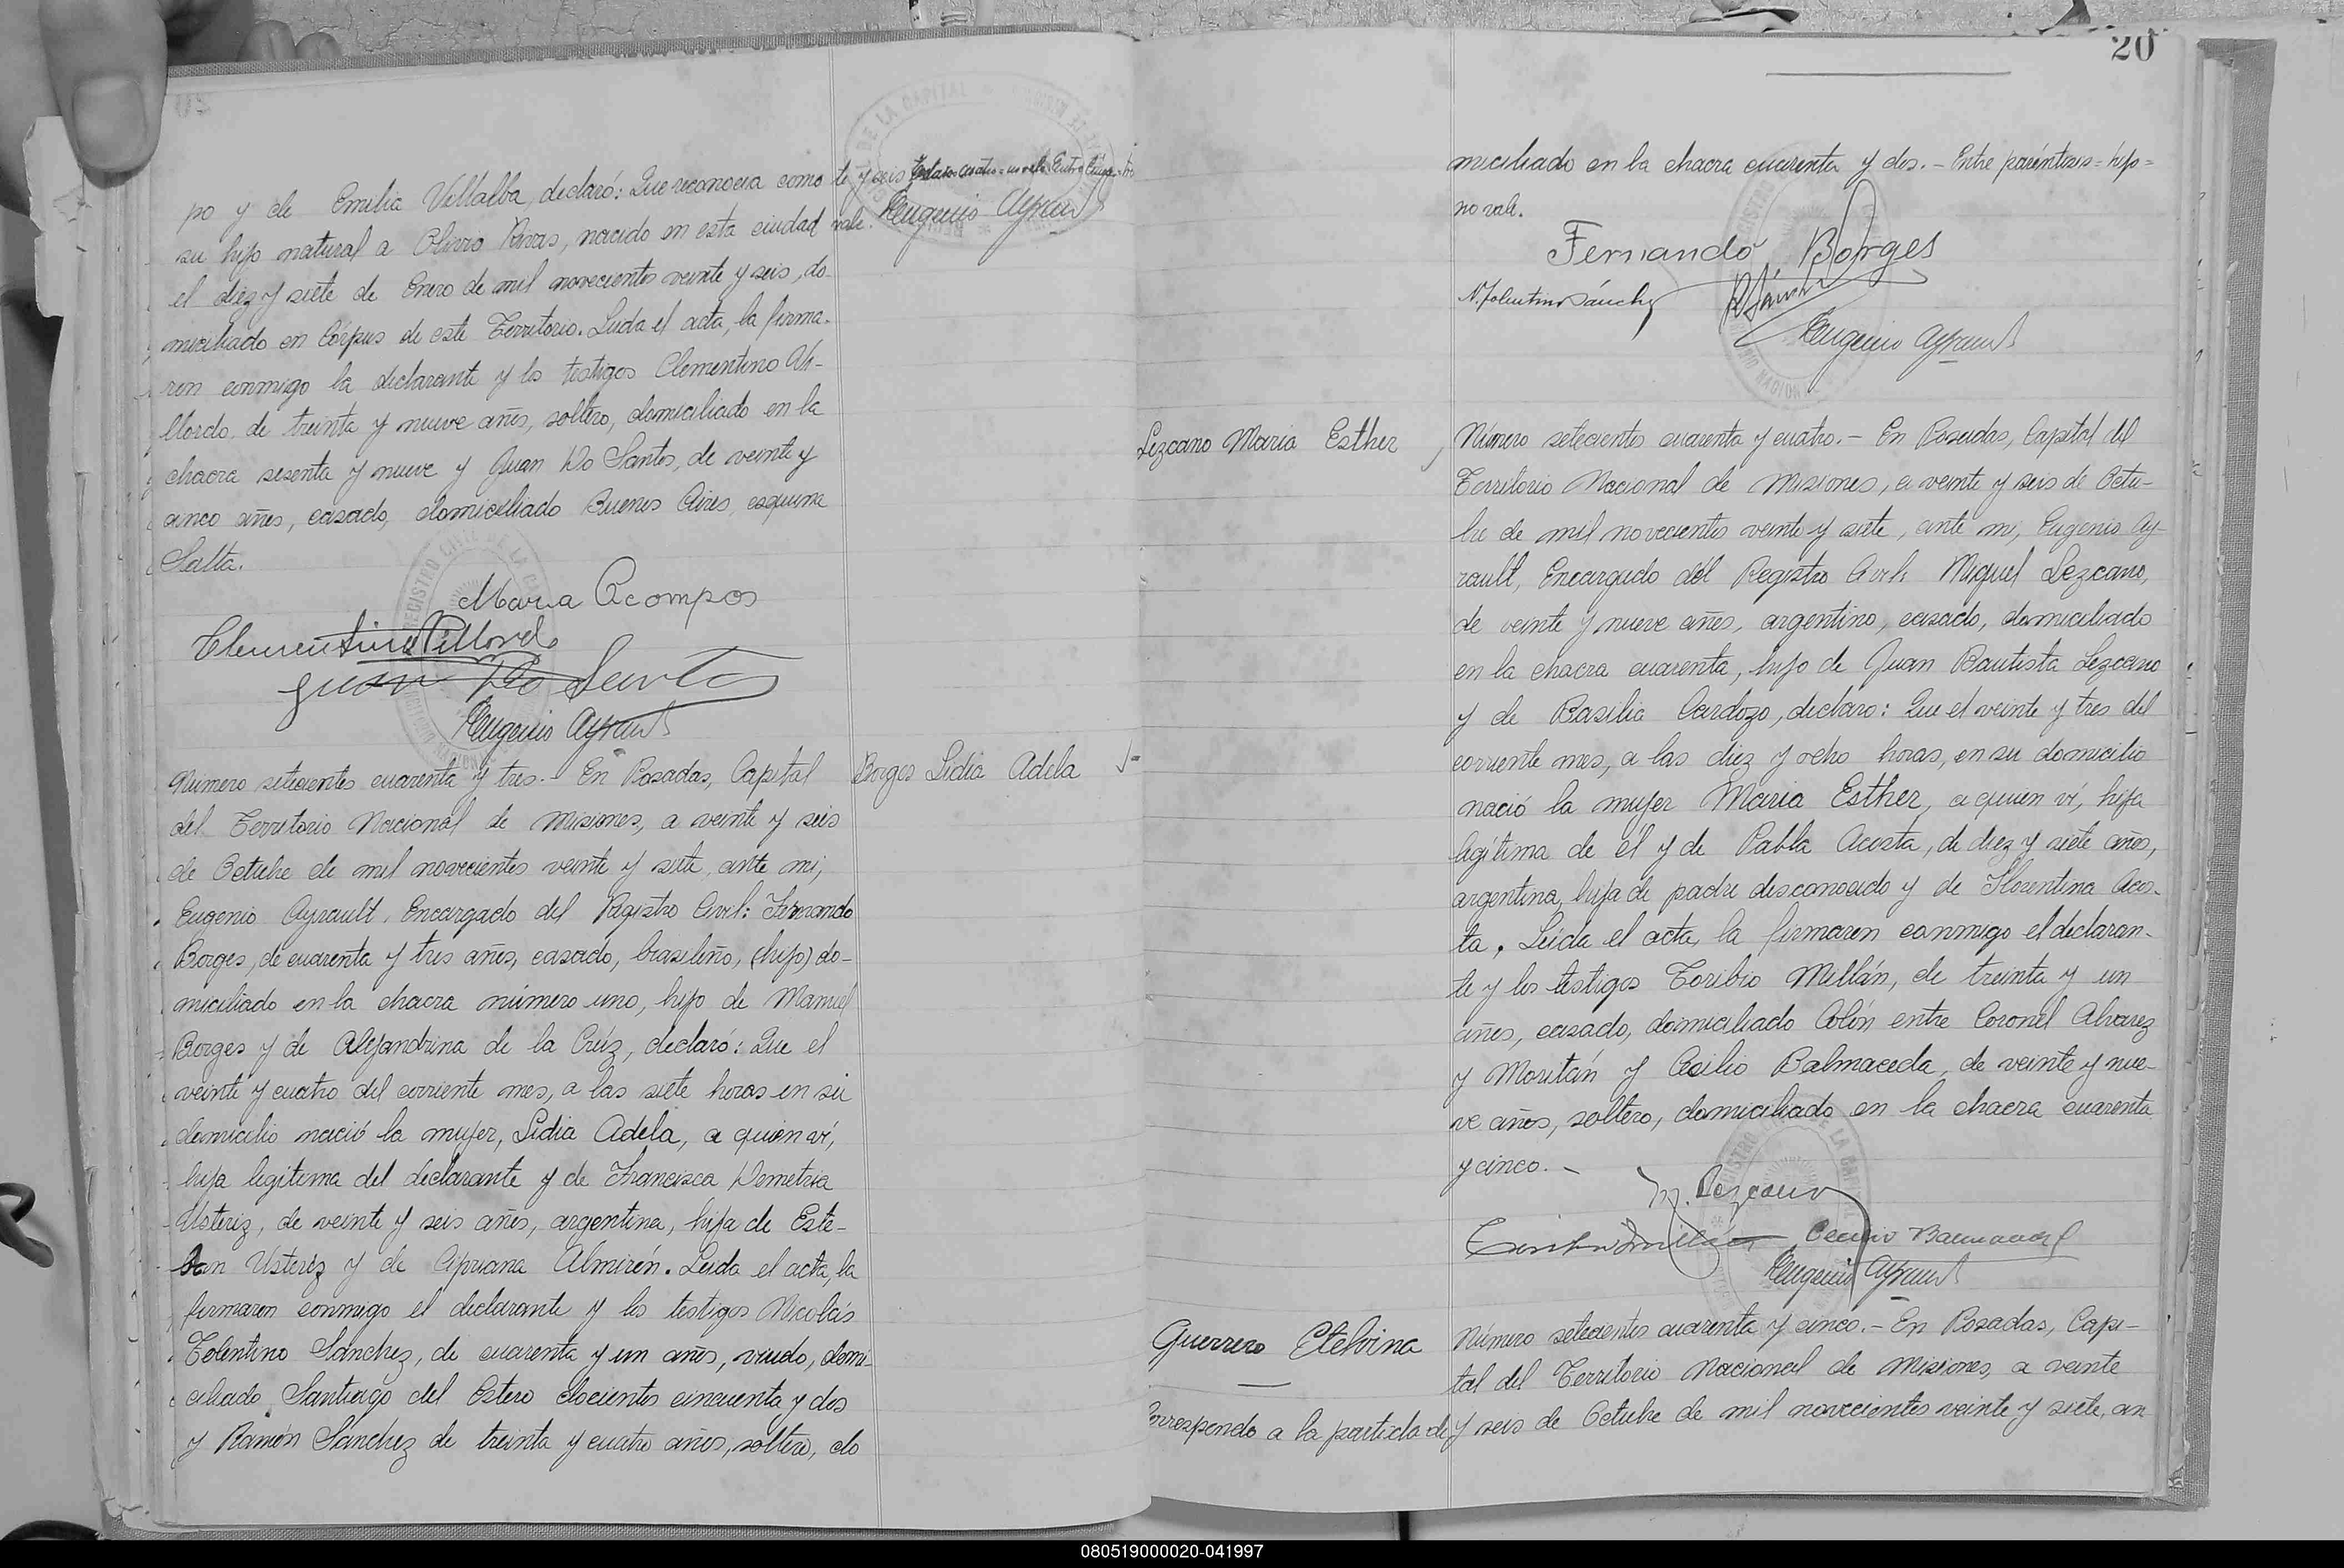 po y de Emilia Villalba, declaró: Que reconocia como
su hijo natural a Olivio Rivas, nacido en esta ciudad
el diez y siete de Enero de mil novecientos veinte y seis, do-
miciliado en Córpus de este Territorio. Leida el acta, la firma-
ron conmigo la declarante y los testigos Clementino
de treinta y nueve años, soltero, domiciliado en la
chacra sesenta y nueve y Juan Do Santos, de veinte y
cinco años, casado, domiciliado Buenos Aires, esquina
Salta.
te y seis
vale. Eugenio Ayrault
Maria Ocampos
Juan Do Santos
Eugenio Ayrault
Borges Lidia Adela
Número setecientos cuarenta y tres.- En Posadas, Capital
del Territorio Nacional de Misiones, a veinte y seis
de Octubre de mil novecientos veinte y siete, ante mi,
Eugenio Ayrault, Encargado del Registro Civil: Fernando
Borges, de cuarenta y tres años, casado, brasileño, (hijo) do-
miciliado en la chacra número uno, hijo de Manuel
Borges y de Alejandrina de la Crúz, declaró: Que el
veinte y cuatro del corriente mes, a las siete horas en su
domicilio nació la mujer, Lidia Adela, a quien ví,
hija legitima del declarante y de Francisca Demetria
Usteriz, de veinte y seis años, argentina, hija de Este-
ban Usteriz y de Cipriana Almirón. Leida el acta, la
firmaron conmigo el declarante y los testigos Nicolás
Tolentino Sánchez, de cuarenta y un años, viudo, domi-
ciliado Santiago del Estero doscientos cincuenta y dos
y Ramón Sánchez de treinta y cuatro años, soltero, do
20
miciliado en la chacra cuarenta y dos.- Entre paréntesis = hijo =
no vale.
Fernando Borges
N. Tolentino Sánchez R Sánchez
Eugenio Ayrault
Lezcano Maria Esther
Número setecientos cuarenta y cuatro.- En Posadas, Capital del
Territorio Nacional de Misiones, a veinte y seis de Octu-
bre de mil novecientos veinte y siete, ante mi, Eugenio Ay-
rault, Encargado del Registro Civil: Miguel Lezcano,
de veinte y nueve años, argentino, casado, domiciliado
en la chacra cuarenta, hijo de Juan Bautista Lezcano
y de Basilia Cardozo, declaro: Que el veinte y tres del
corriente mes, a las diez y ocho horas, en su domicilio
nació la mujer Maria Esther, a quien ví, hija
legítima de él y de Pabla Acosta, de diez y siete años,
argentina, hija de padre desconocido y de Florentina Acos-
ta. Leida el acta, la firmaron conmigo el declaran-
te y los testigos Toribio Millán, de treinta y un
años, casado, domiciliado Colón entre Coronel Alvarez
y Moritán y Cecilio Balmaceda, de veinte y nue-
ve años, soltero, domiciliado en la chacra cuarenta
y cinco.-
M. Lezcano
Toribio Millán Cecilio Balmaceda
Eugenio Ayrault
Guerrero Etelvina
Corresponde a la partida de
Número setecientos cuarenta y cinco.- En Posadas, Capi-
tal del Territorio Nacional de Misiones, a veinte
y seis de Octubre de mil novecientos veinte y siete, an
080519000020-041997